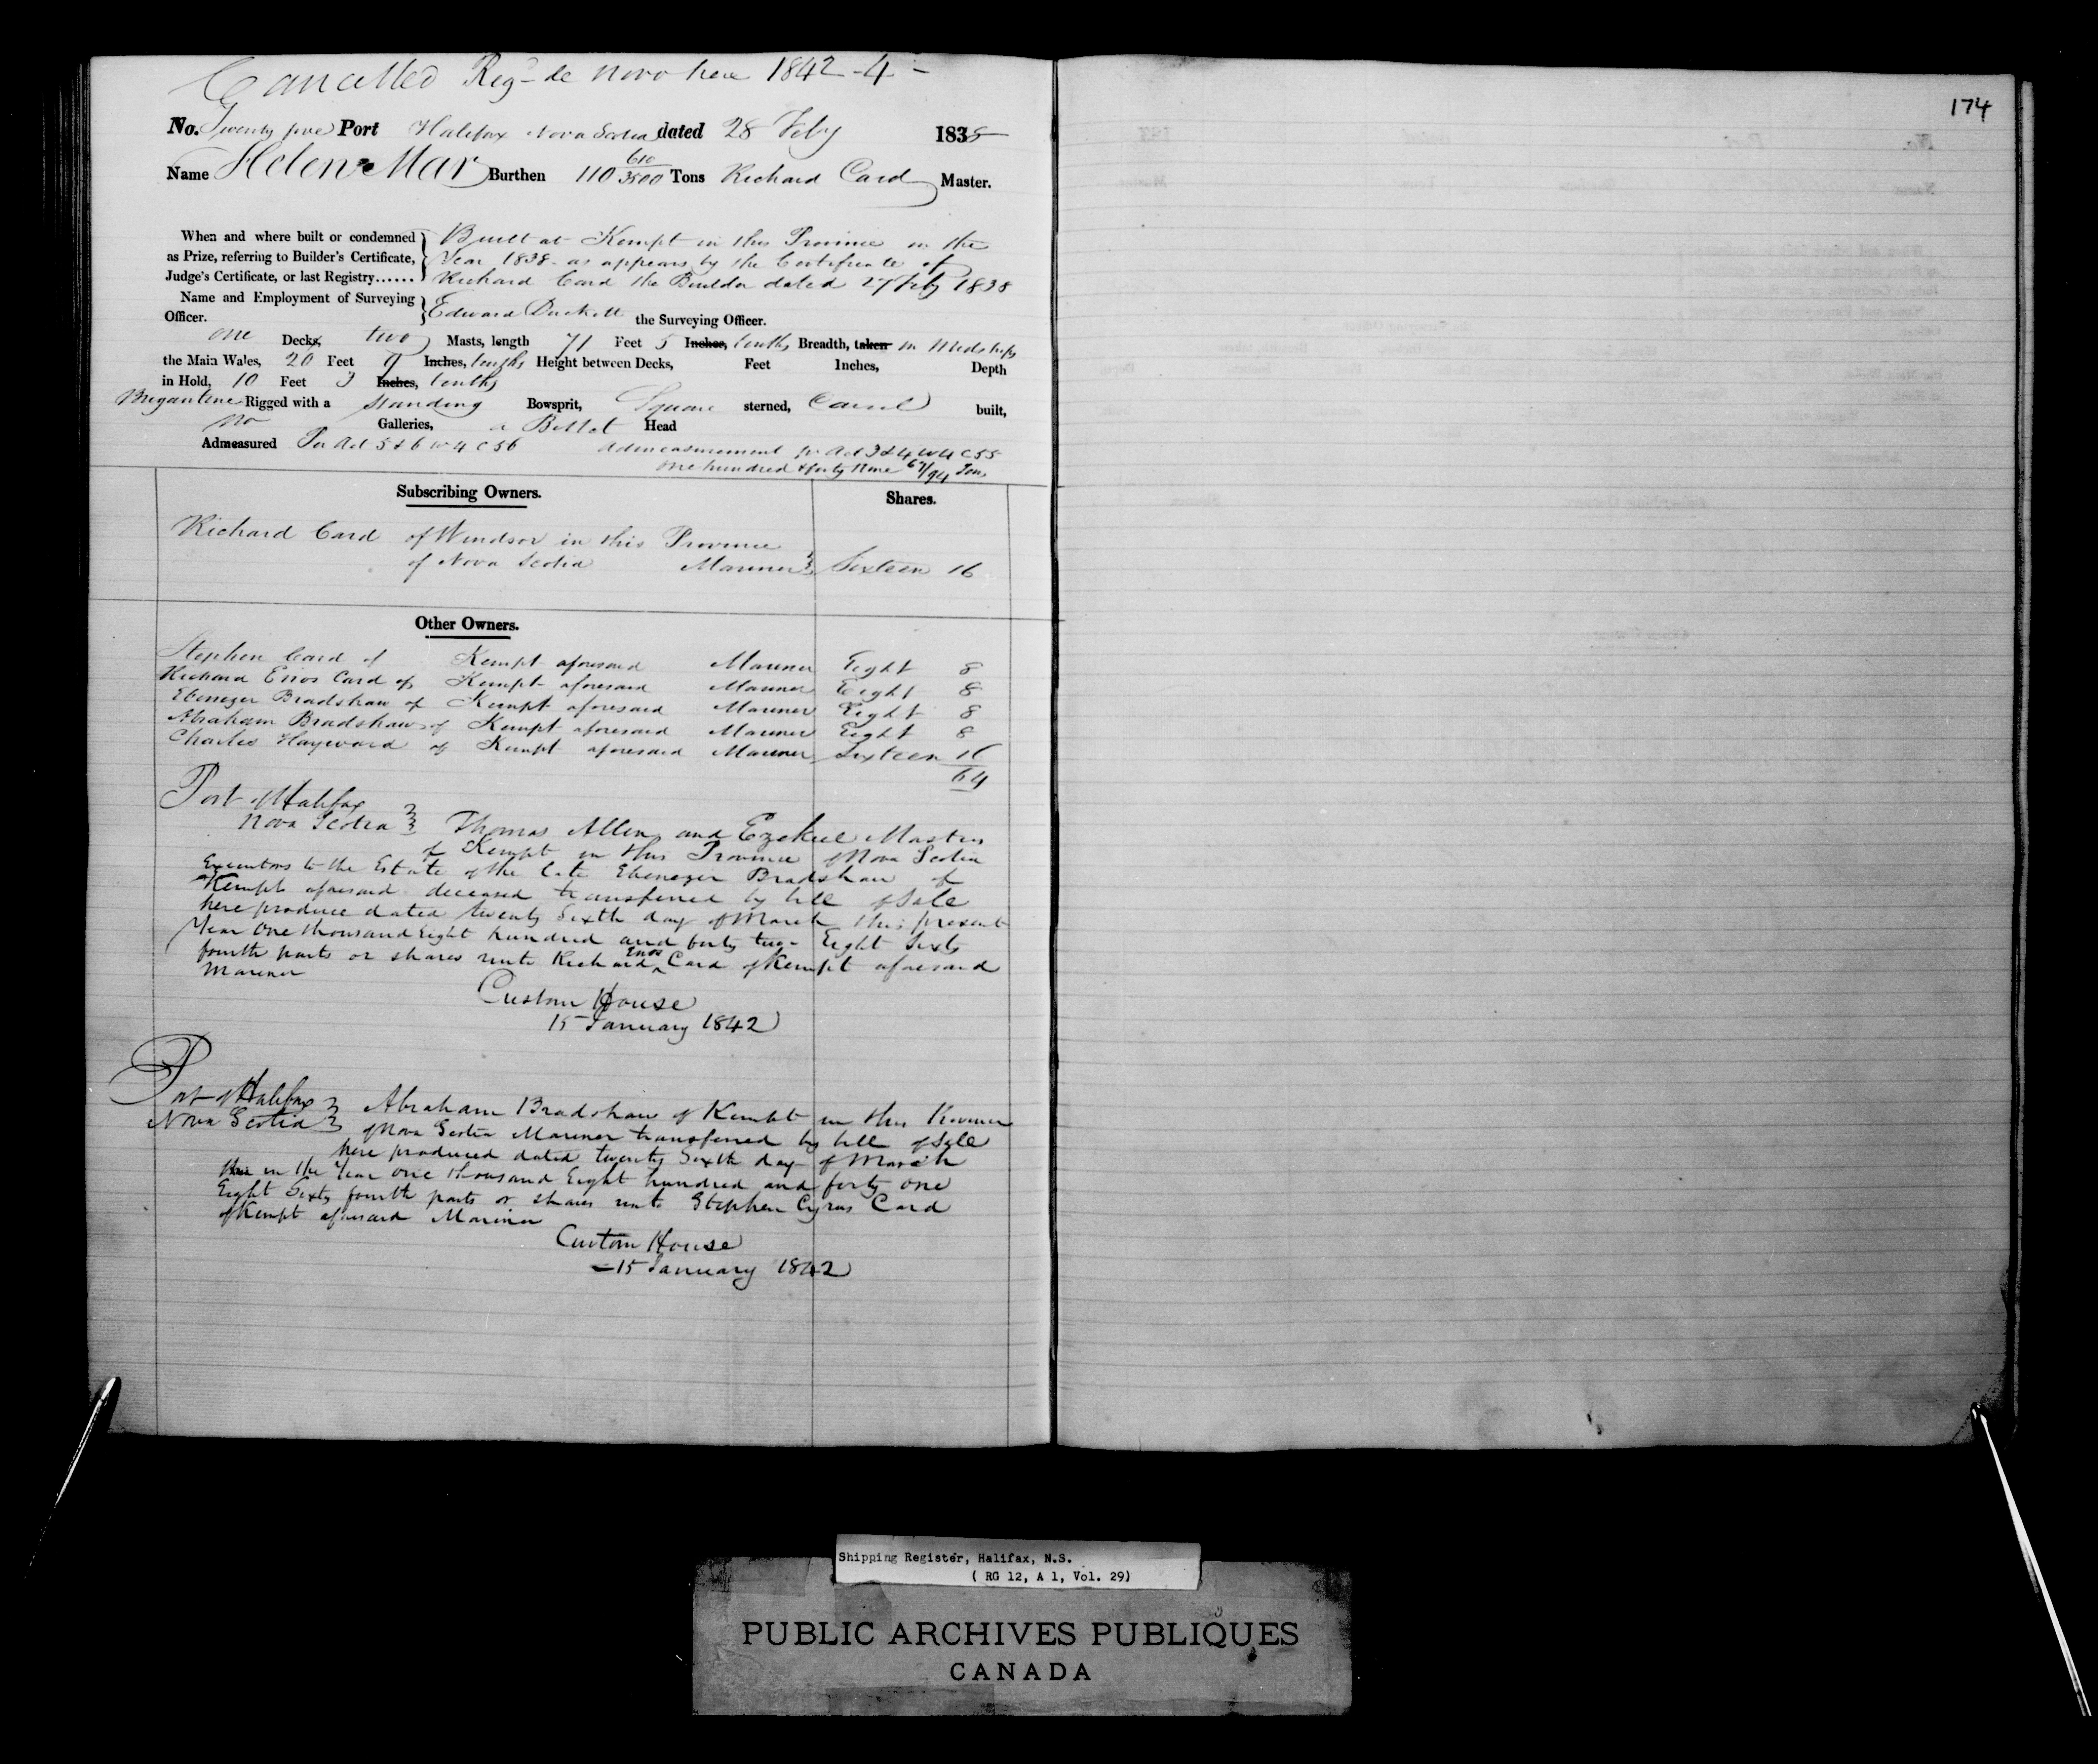 Cancelled Reg- de novo here 1842-4-
No. Twenty five Port Halifax Nova Scotia dated 28 Feby 1838
Name Helen Mar Burthen 110 610/3500 Tons Richard Card Master.
When and where built or condemned as Prize, referring to Builder's Certificate, Judge's Certificate, or last Registry......
Built at Kempt in this Province in the
Year 1838 as appears by the Certificate of
Richard Card the Builder dated 27 Feby 1838
Name and Employment of Surveying Officer.
Edward Duckett the Surveying Officer.
one Decks, two Masts, length 71 Feet 5 Inches, tenths Breadth, taken in Midships
the Main Wales, 20 Feet 9 Inches, tenths Height between Decks, Feet Inches, Depth
in Hold, 10 Feet 3 Inches, tenths
Brigantine Rigged with a standing Bowsprit, Square sterned, Carvel built,
no Galleries, a Billet Head
Admeasured Per Act 5 & 6 W 4 C 56 admeasurement pr Act 3 & 4 W 4 C 55
one hundred & forty nine 67/94 Tons
Subscribing Owners. Shares.
Richard Card of Windsor in this Province
of Nova Scotia Mariner Sixteen 16
Other Owners.
Stephen Card of Kempt aforesaid Mariner Eight 8
Richard Enos Card of Kempt aforesaid Mariner Eight 8
Ebenezer Bradshaw of Kempt aforesaid Mariner Eight 8
Abraham Bradshaw of Kempt aforesaid Mariner Eight 8
Charles Hayward of Kempt aforesaid Mariner Sixteen 16
64
Port of Halifax
Nova Scotia Thomas Allen and Ezekiel Masters
of Kempt in this Province of Nova Scotia
Executors to the Estate of the late Ebenezer Bradshaw of
Kempt aforesaid deceased transferred by bill of Sale
here produce dated twenty Sixth day of March this present
Year One thousand Eight hundred and forty two- Eight Sixty
fourth parts or shares unto Richard Enos Card of Kempt aforesaid
Mariner
Custom House
15 January 1842
Port of Halifax
Nova Scotia Abraham Bradshaw of Kempt in this Province
of Nova Scotia Mariner transferred by bill of Sale
here produced dated twenty Sixth day of March
in the Year One thousand Eight hundred and forty one
Eight Sixty fourth parts or shares unto Stephen Cyrus Card
of Kempt aforesaid Mariner
Custom House
-15 January 1842
174
Shipping Register, Halifax, N.S.
( RG 12, A 1, Vol. 29)
PUBLIC ARCHIVES PUBLIQUES
CANADA